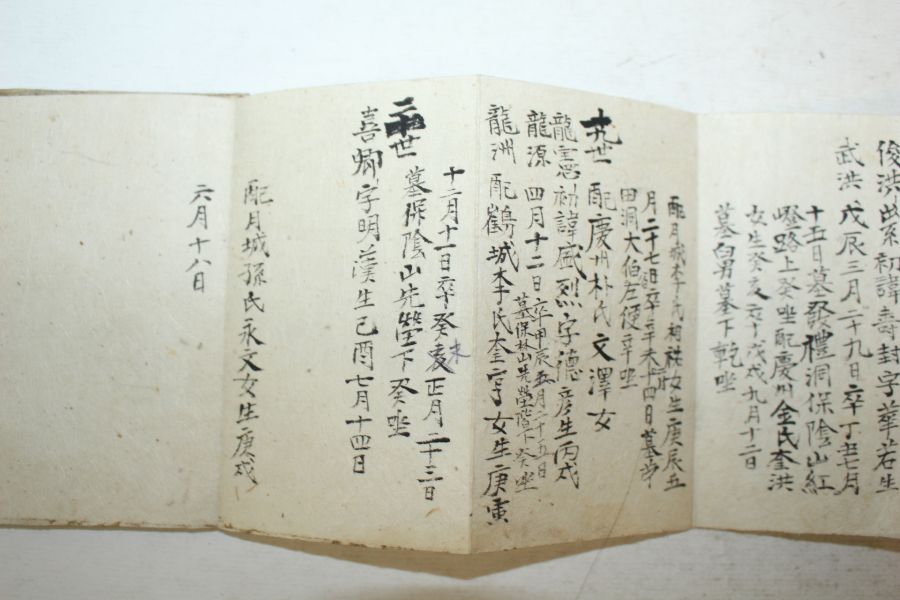 俊洪 出系初諱壽封字華若生
武洪 戊辰三月二十九日卒丁丑七月
十五日墓發禮洞保陰山紅
嶝路上癸坐配慶州金氏奎洪
女生癸亥卒戊戌九月十二日
墓舅墓下乾坐
配月城李氏祠女生庚辰五
月二十七日卒辛未十四日墓茅
田洞大伯左便辛坐
十九世 配慶州朴氏文澤女
龍憲初諱盛烈字德彦生丙戌
龍源 四月十二日卒甲辰五月二十五日
墓保林山先塋階下癸坐
龍洲 配鶴城李氏奎字女生庚寅
十二月十一日卒癸未正月二十三日
二十世 墓保陰山先塋下癸坐
喜卿字明漢生己酉七月十四日
配月城孫氏永文女生庚戌
六月十八日